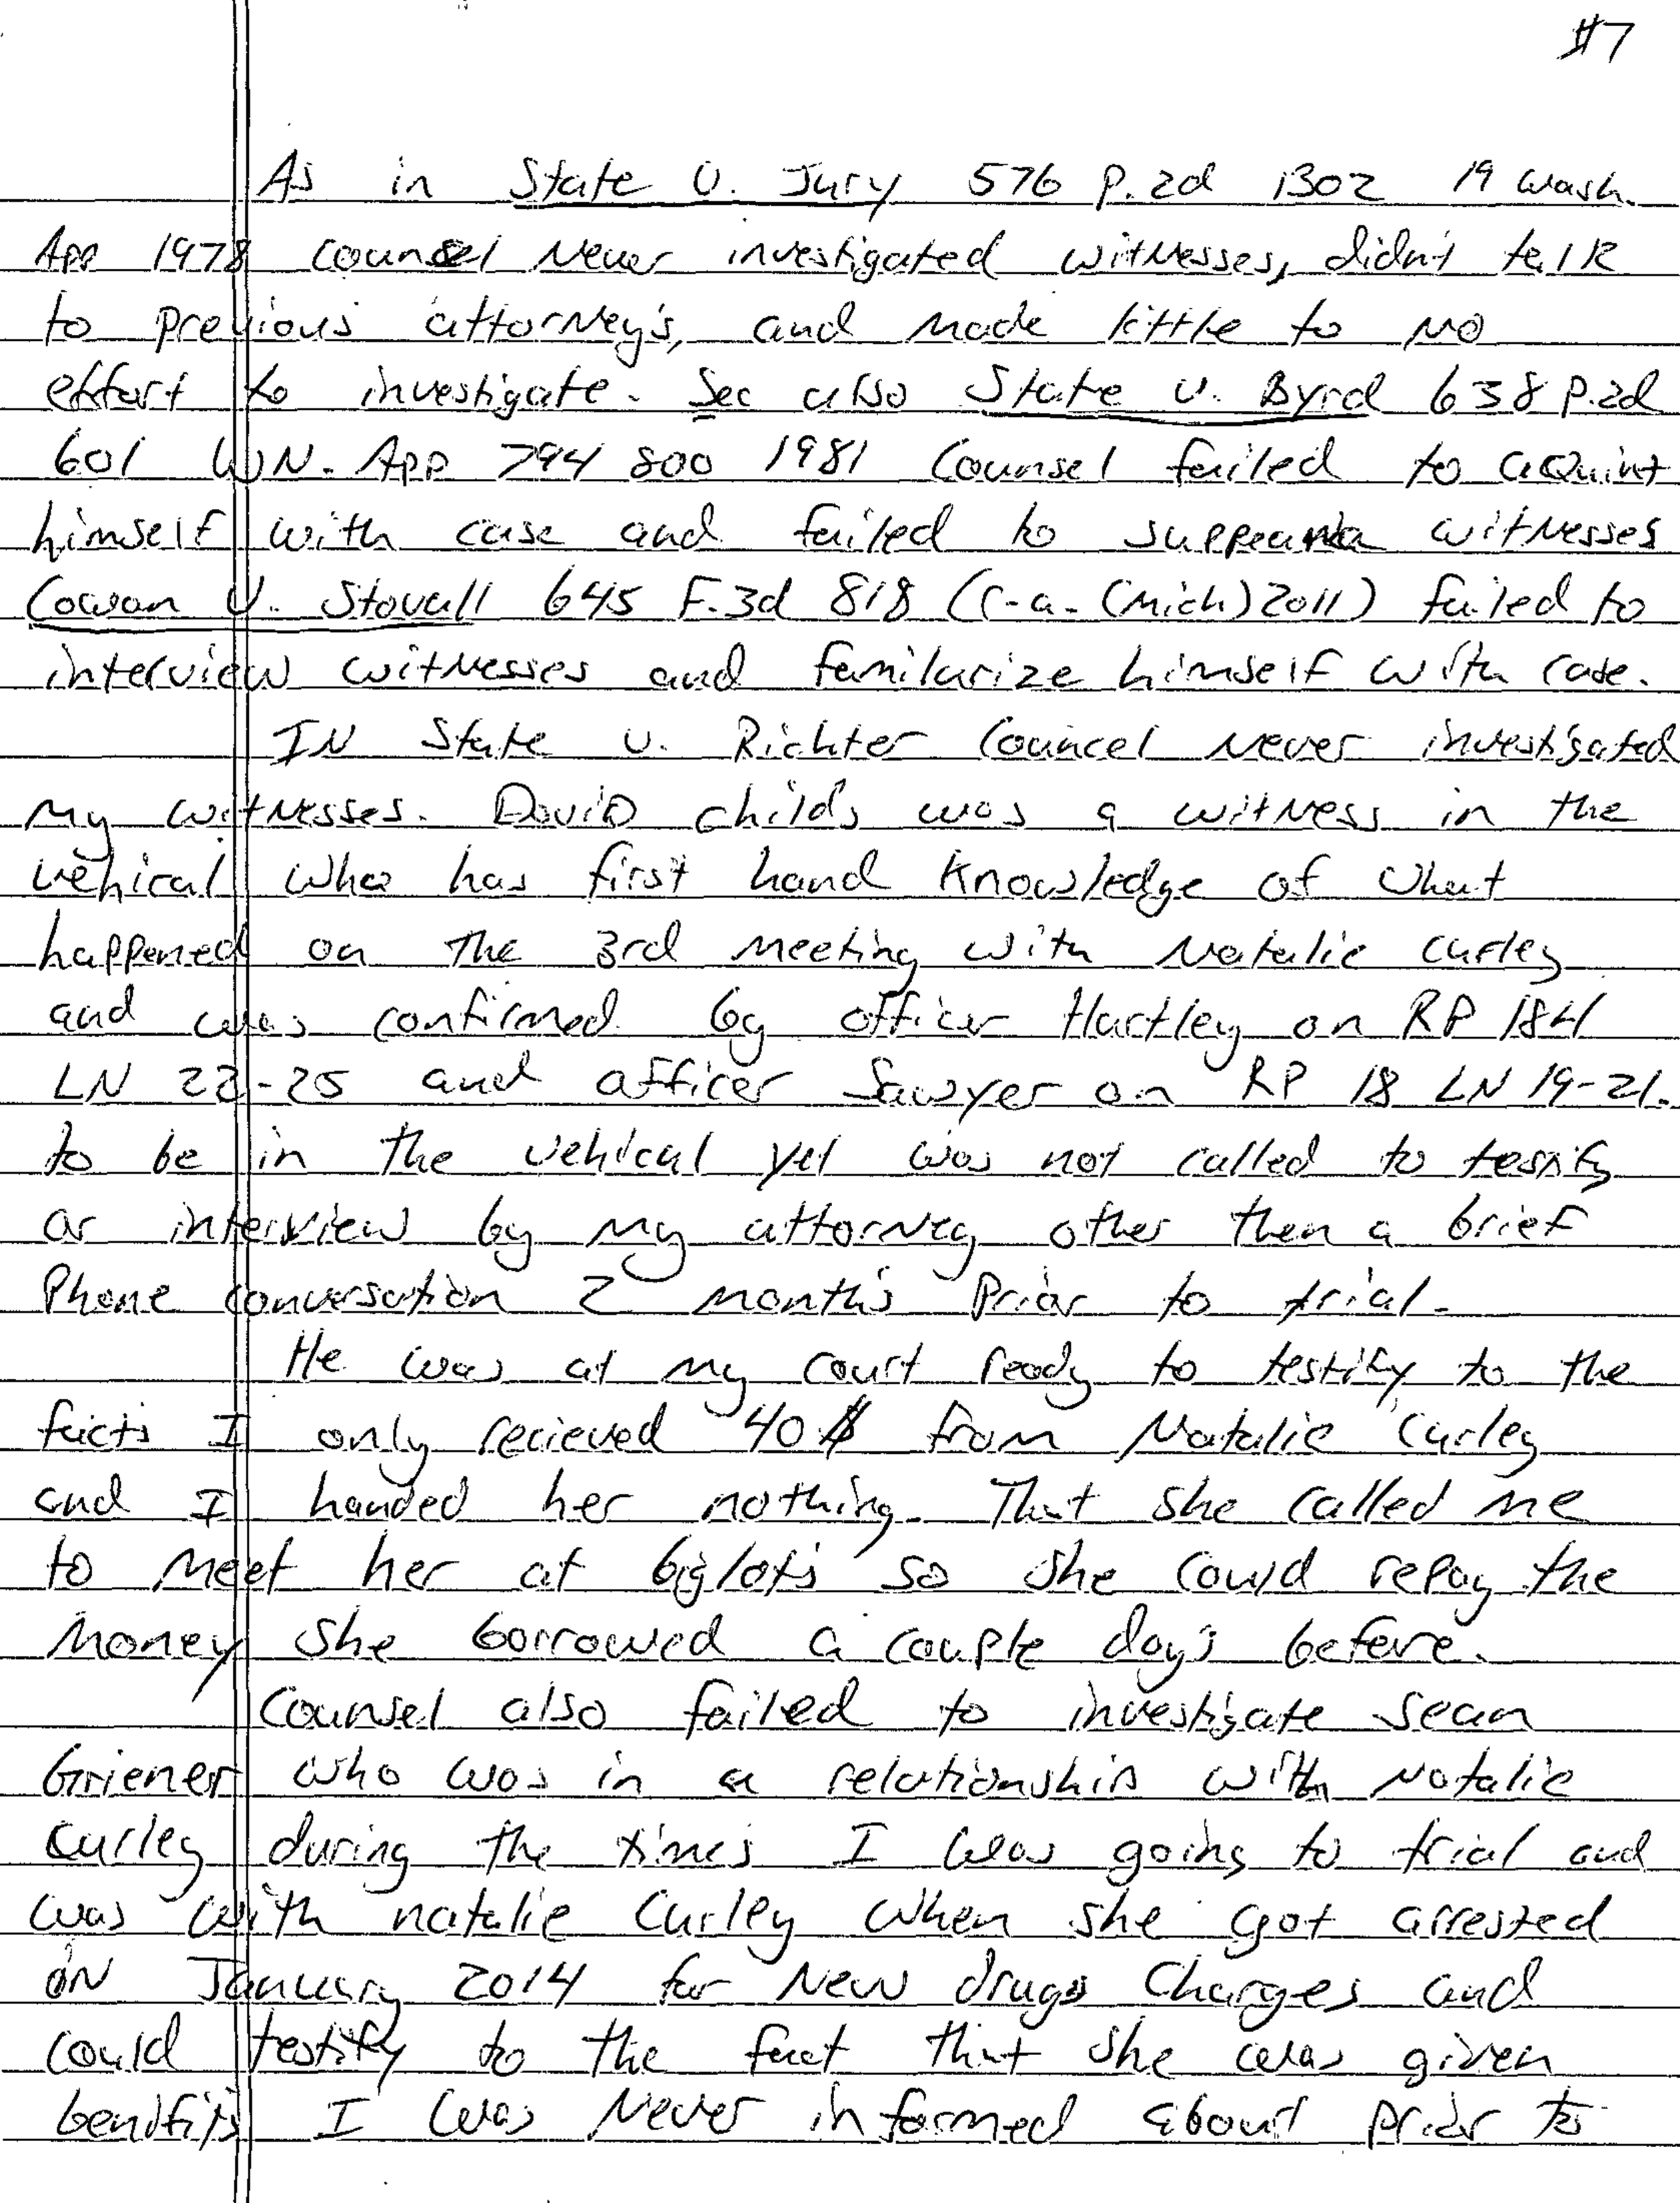 #7
As in State V. Jury 576 P.2d 1302 19 Wash.
App 1978 counsel Never investigated witnesses, didn't talk
to previous attorney's, and made little to NO
effort to investigate. See also State v. Byrd 638 P.2d
601 WN. App 794 800 1981 Counsel failed to aquint
himself with case and failed to witnesses
Cowan V. Stovall 645 F.3d 818 (C.a. (Mich) 2011) failed to
interview witnesses and familurize himself with case.
IN State v. Richter Councel Never investigated
my witnesses. DaviD childs was a witness in the
vehical who has first hand knowledge of what
happened on the 3rd meeting with Natalie Curley
and was confirmed by officer Hartley on RP 184
LN 22-25 and officer Sawyer on RP 18 LN 19-21.
to be in the vehical yet was not called to testify
or interview by my attorney other then a brief
Phone conversation 2 month's Prior to trial.
He was at my court ready to testify to the
facts I only recieved 40$ from Natalie Curley
and I handed her nothing. That she called me
to meet her at biglot's so she could repay the
money she borrowed a couple day's before.
Counsel also failed to investigate Sean
Griener who was in a relationship with Natalie
Curley during the time's I was going to trial and
was with natalie Curley when she got arrested
on January 2014 for New drugs Charges and
could testify to the fact that she was given
benifits I was Never informed about prior to